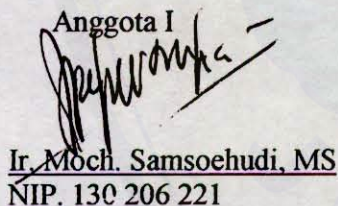 Anggota I
Ir. Moch. Samsoehudi, MS
NIP. 130 206 221